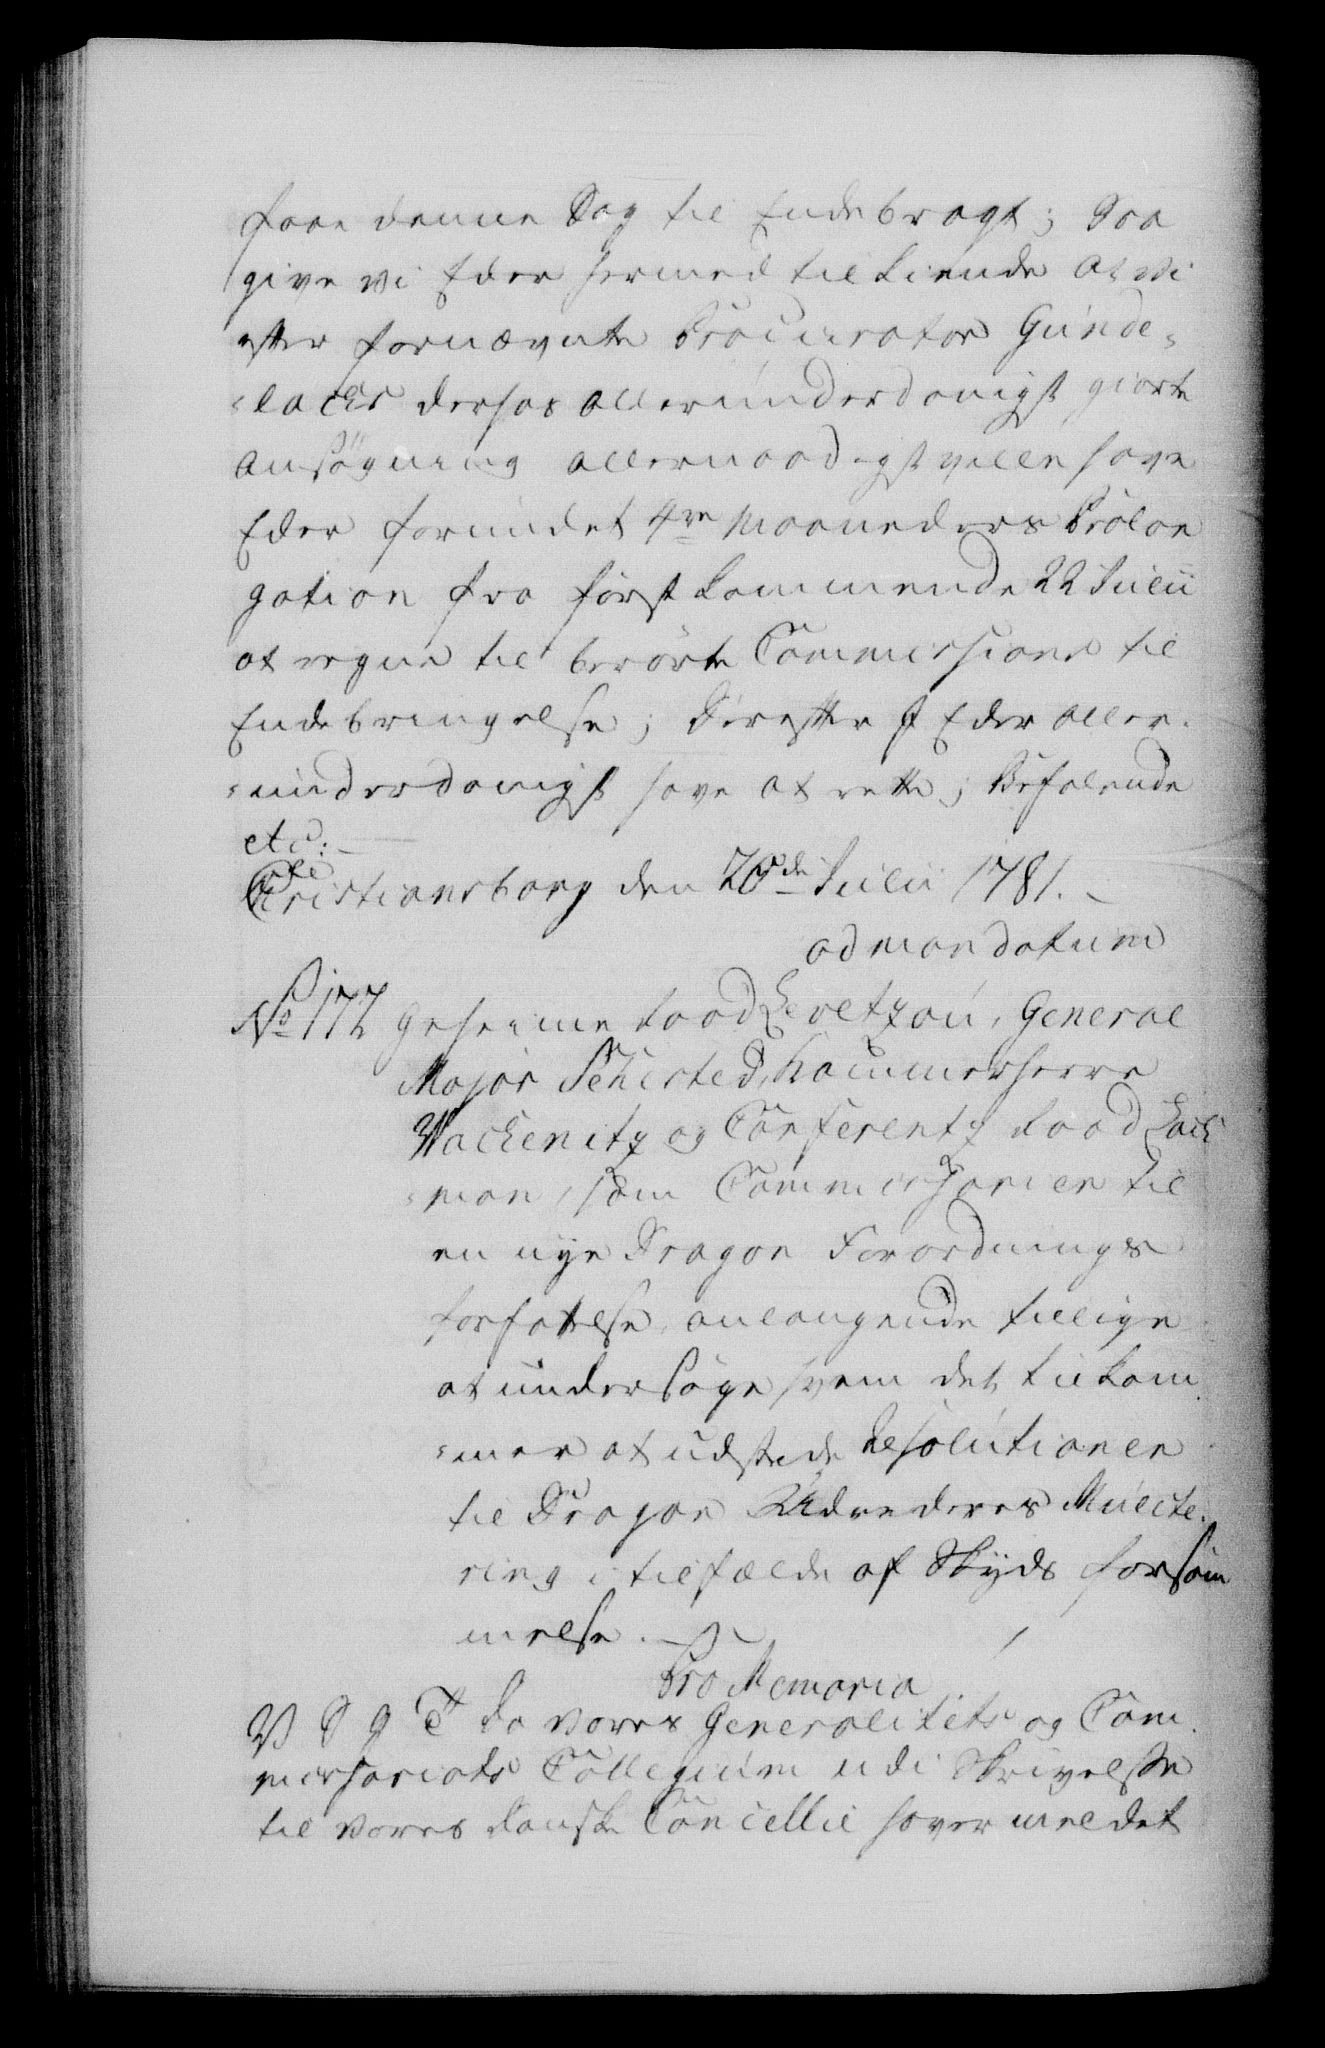 faae denne Sag til Endebragt; Saa
give vi Eder hermed tilkiende at vi
efter fornævnte Procurator Gunde-
-lachs derhos allerunderdanigst giorte
ansøgning allernaadigst ville have
Eder forundet 4re Maaneders Prolon
gation fra først kommende 22 Julii
at regne til berørte Commissions til
Endebringelse; Derefter I Eder aller-
-underdanigst have at rette; Befalende
etc:
Christiansborg den 20de Julii 1781.
ad mandatum
No 172 Geheime Raad Levetzou, General
Major Schested, Kammerherre
Wackenitz og Conferentz Raad Lach
-man, som Commissarier til
en nye Dragon Forordnings
forfattelse anlangende tillige
at undersøge hvem det tilkom
-mer at udstede Resolutioner
til Dragon Udredernes Mulcte-
ring i tilfælde af Skyds forsøm
melse.
Pro Memoria
V S G T Da vores Generalitets og Com
missariats Collegium udi Skrivelse
til vores danske Cancellie haver meldet